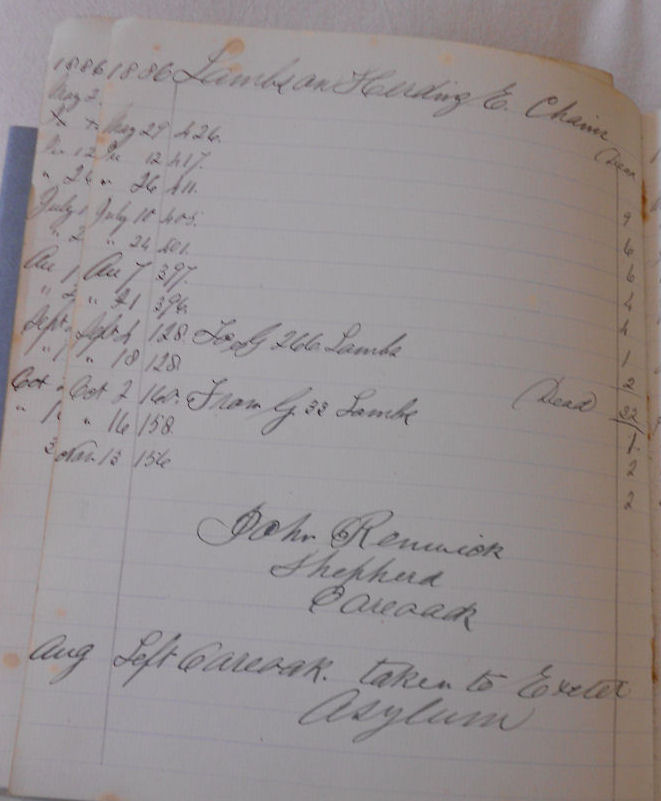 1886 1886 Lambs on Herding E. Chains
May 2. Dead
x x May 29 426. 9
Ju 12 Ju 12 417. 6
" 26 " 26 411. 6
July 1 July 10 405. 4
" 2 " 24 401. 4
Au 1 Au 7 397. 1
" 2 " 21 396. 2
Sept Sept 4 128. To G 266 Lambs
" 1 " 18 128. Dead 32
Oct 2 Oct 2 160. From G 33 Lambs 1
" 1 " 16 158. 2
3 Nov. 13 156 2
John Renwick
Shepherd
Careoack
Aug Left Careoak. taken to Exeter
Asylum